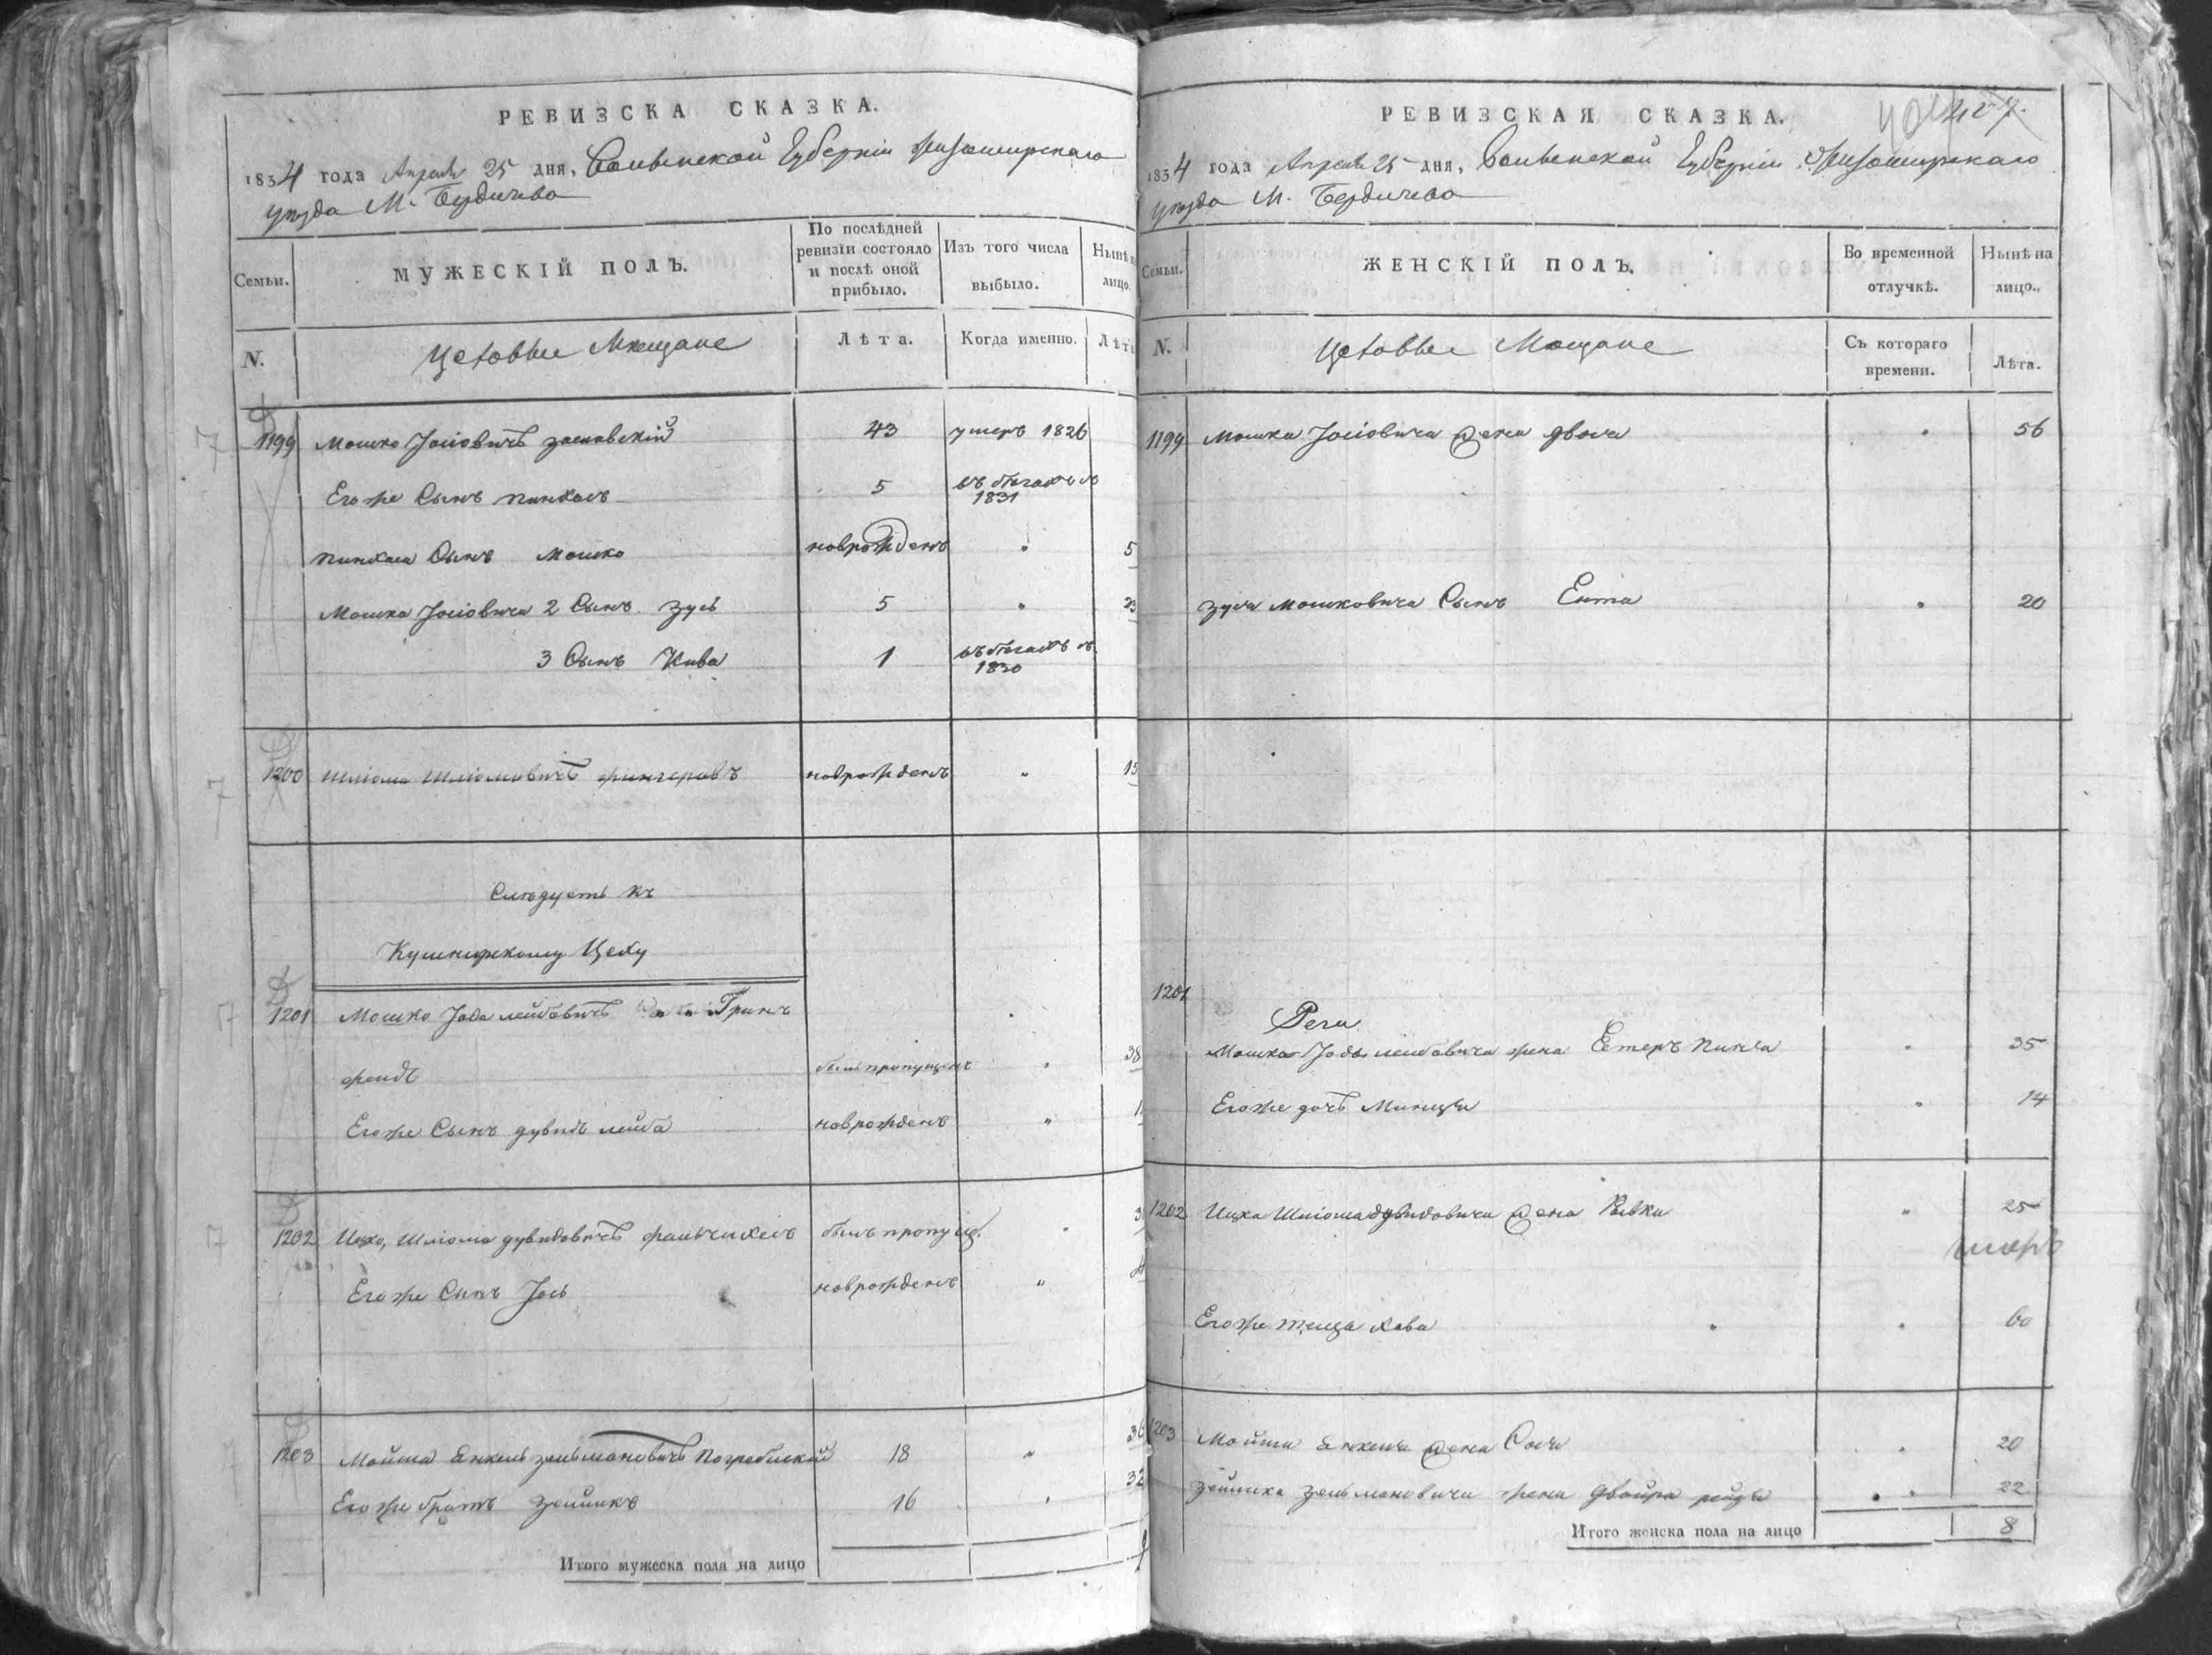 РЕВИЗСКА СКАЗКА.
1834 года Апреля 25 дня, Волынской Губерніи Житомирскаго
уѣзда М. Бердичева
Семьи.
МУЖЕСКІЙ ПОЛЪ.
По послѣдней ревизіи состояло и послѣ оной прибыло.
Изъ того числа выбыло.
Нынѣ на лицо.
N.
Цеховые Мѣщане
Лѣта.
Когда именно.
Лѣта
1199 Мошко Іосіовичъ заславскій 43 умеръ 1826
Егоже Сынъ пинхасъ 5 въ бѣгахъ съ 1831
пинхаса Сынъ Мошко новрожденъ " 5
Мошка Іосіовича 2 Сынъ Зусь 5 " 23
3 Сынъ Кива 1 въ бѣгахъ съ 1830
1200 Шліома Шліомовичъ новрожденъ " 15
Слѣдуетъ къ
Кушнирскому Цеху
1201 Мошко Іода лейбовичъ Гринъ
фелдъ былъ пропущенъ " 38
Егоже Сынъ дувидъ лейба новрожденъ "
1202 Ицко, Шліома дувидовичъ былъ пропущ. "
Егоже Сынъ Іось новрожденъ "
1203 Енкель зельмановичъ Погребиский 18 " 36
Егоже братъ Зейликъ 16 " 32
Итого мужеска пола на лицо
РЕВИЗСКАЯ СКАЗКА.
407.
1834 года Апреля 25 дня, Волынской Губерніи Житомирскаго
уѣзда М. Бердичева
Семьи.
ЖЕНСКІЙ ПОЛЪ.
Во временной отлучкѣ.
Нынѣ на лицо.
N.
Цеховые Мѣщане
Съ котораго времени.
Лѣта.
1199 Мошка Іосіовича жена двося " 56
зуся мошковича Сынъ Ента " 20
1201
Мошка Іоды лейбовича жена Естеръ " 35
Егоже дочь Минця " 14
1202 Ицка Шліома дувидовича жена Ривка " 25
Егоже теща хава " 60
1203 Енкеля жена Сося " 20
Зейлика зельмановича жена двойра рейзя " 22
Итого женска пола на лицо 8